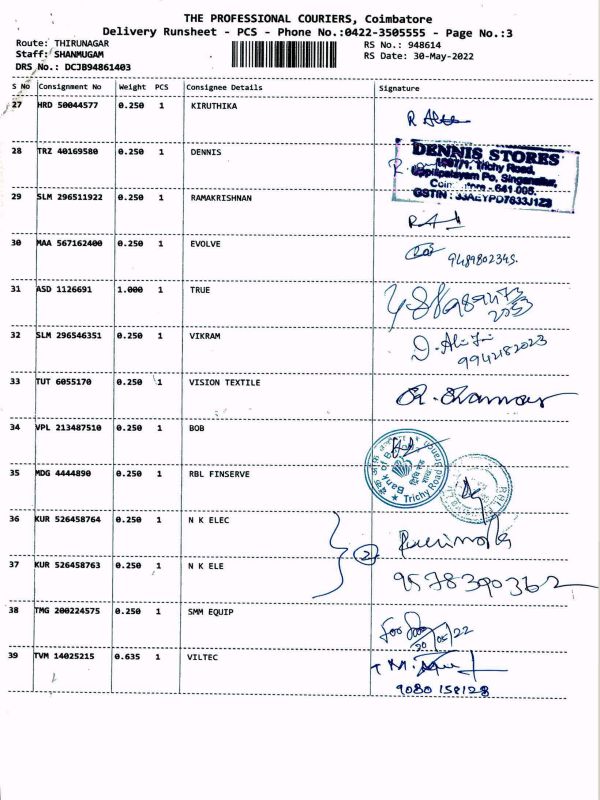 THE PROFESSIONAL COURIERS, Coimbatore
Delivery Runsheet - PCS - Phone No.:0422-3505555 - Page No.:3
Route: THIRUNAGAR
RS No.: 948614
Staff: SHANMUGAM
RS Date: 30-May-2022
DRS No.: DCJB94861403
S No Consignment No Weight PCS Consignee Details Signature
27 HRD 50044577 0.250 1 KIRUTHIKA
28 TRZ 40169580 0.250 1 DENNIS
DENNIS STORES
Trichy Road,
Uppilipalayam Po, Singanallur,
641 005.
29 SLM 296511922 0.250 1 RAMAKRISHNAN
30 MAA 567162400 0.250 1 EVOLVE
9489802345.
31 ASD 1126691 1.000 1 TRUE
32 SLM 296546351 0.250 1 VIKRAM
9942182023
33 TUT 6055170 0.250 1 VISION TEXTILE
34 VPL 213487510 0.250 1 BOB
Bank of
Trichy Road Branch
35 MDG 4444890 0.250 1 RBL FINSERVE
36 KUR 526458764 0.250 1 N K ELEC
2
37 KUR 526458763 0.250 1 N K ELE
9578390362
38 TMG 200224575 0.250 1 SMM EQUIP
39 TVM 14025215 0.635 1 VILTEC
9080 158128